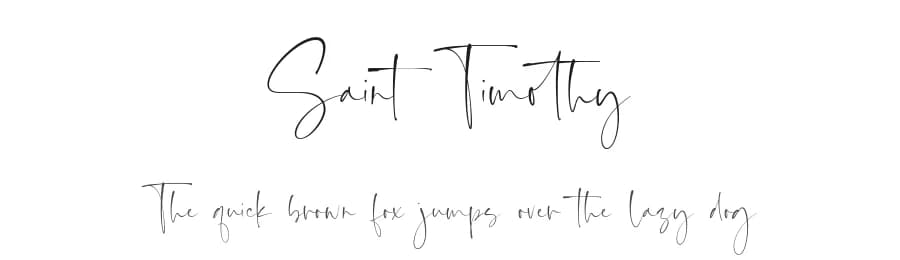 Saint Timothy
The quick brown fox jumps over the lazy dog